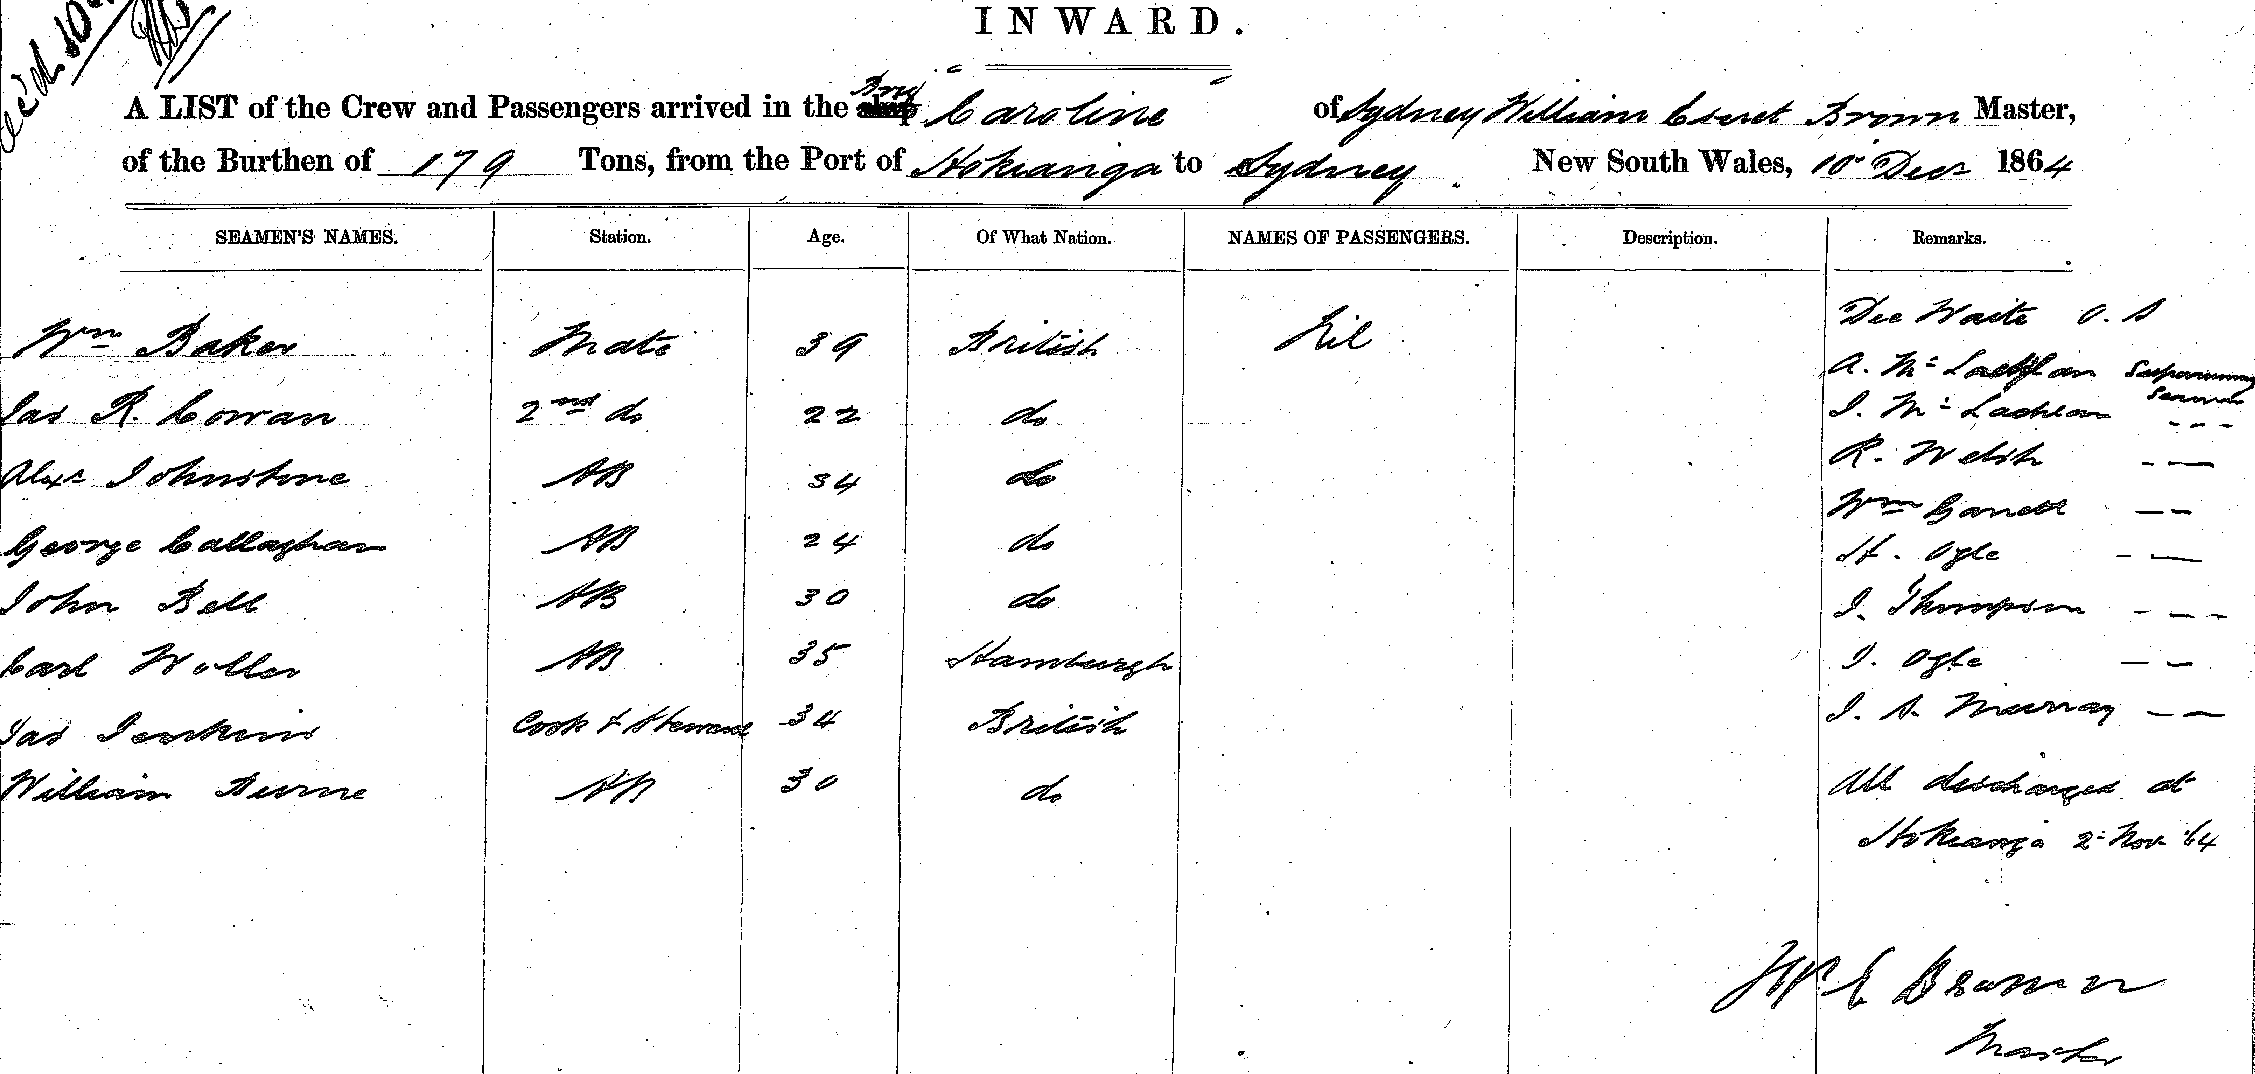 INWARD.
A LIST of the Crew and Passengers arrived in the Brig Caroline of Sydney William Brown Master,
of the Burthen of 179 Tons, from the Port of Hokianga to Sydney New South Wales, 10 Decr 1864
SEAMEN'S NAMES. Station. Age. Of What Nation. NAMES OF PASSENGERS. Description. Remarks.
Wm Baker Mate 39 British Nil Dee Waite O.S
A. McLachlan Supernumary Seaman
Jas R. Cowan 2nd do 22 do J. McLachlan - - -
Alexr Johnstone AB 34 do R. Welsh - -
George Callaghan AB 24 do Wm Garrett - -
H. Ogle - -
John Bell AB 30 do J. Thompson - - -
Carl Woller AB 35 Hamburgh J. Ogle - -
Jas Jenkins Cook & Steward 34 British J. S. Murray - -
William Burne AB 30 do All discharged at
Hokianga 2 Nov 64
Wm E Brown
Master